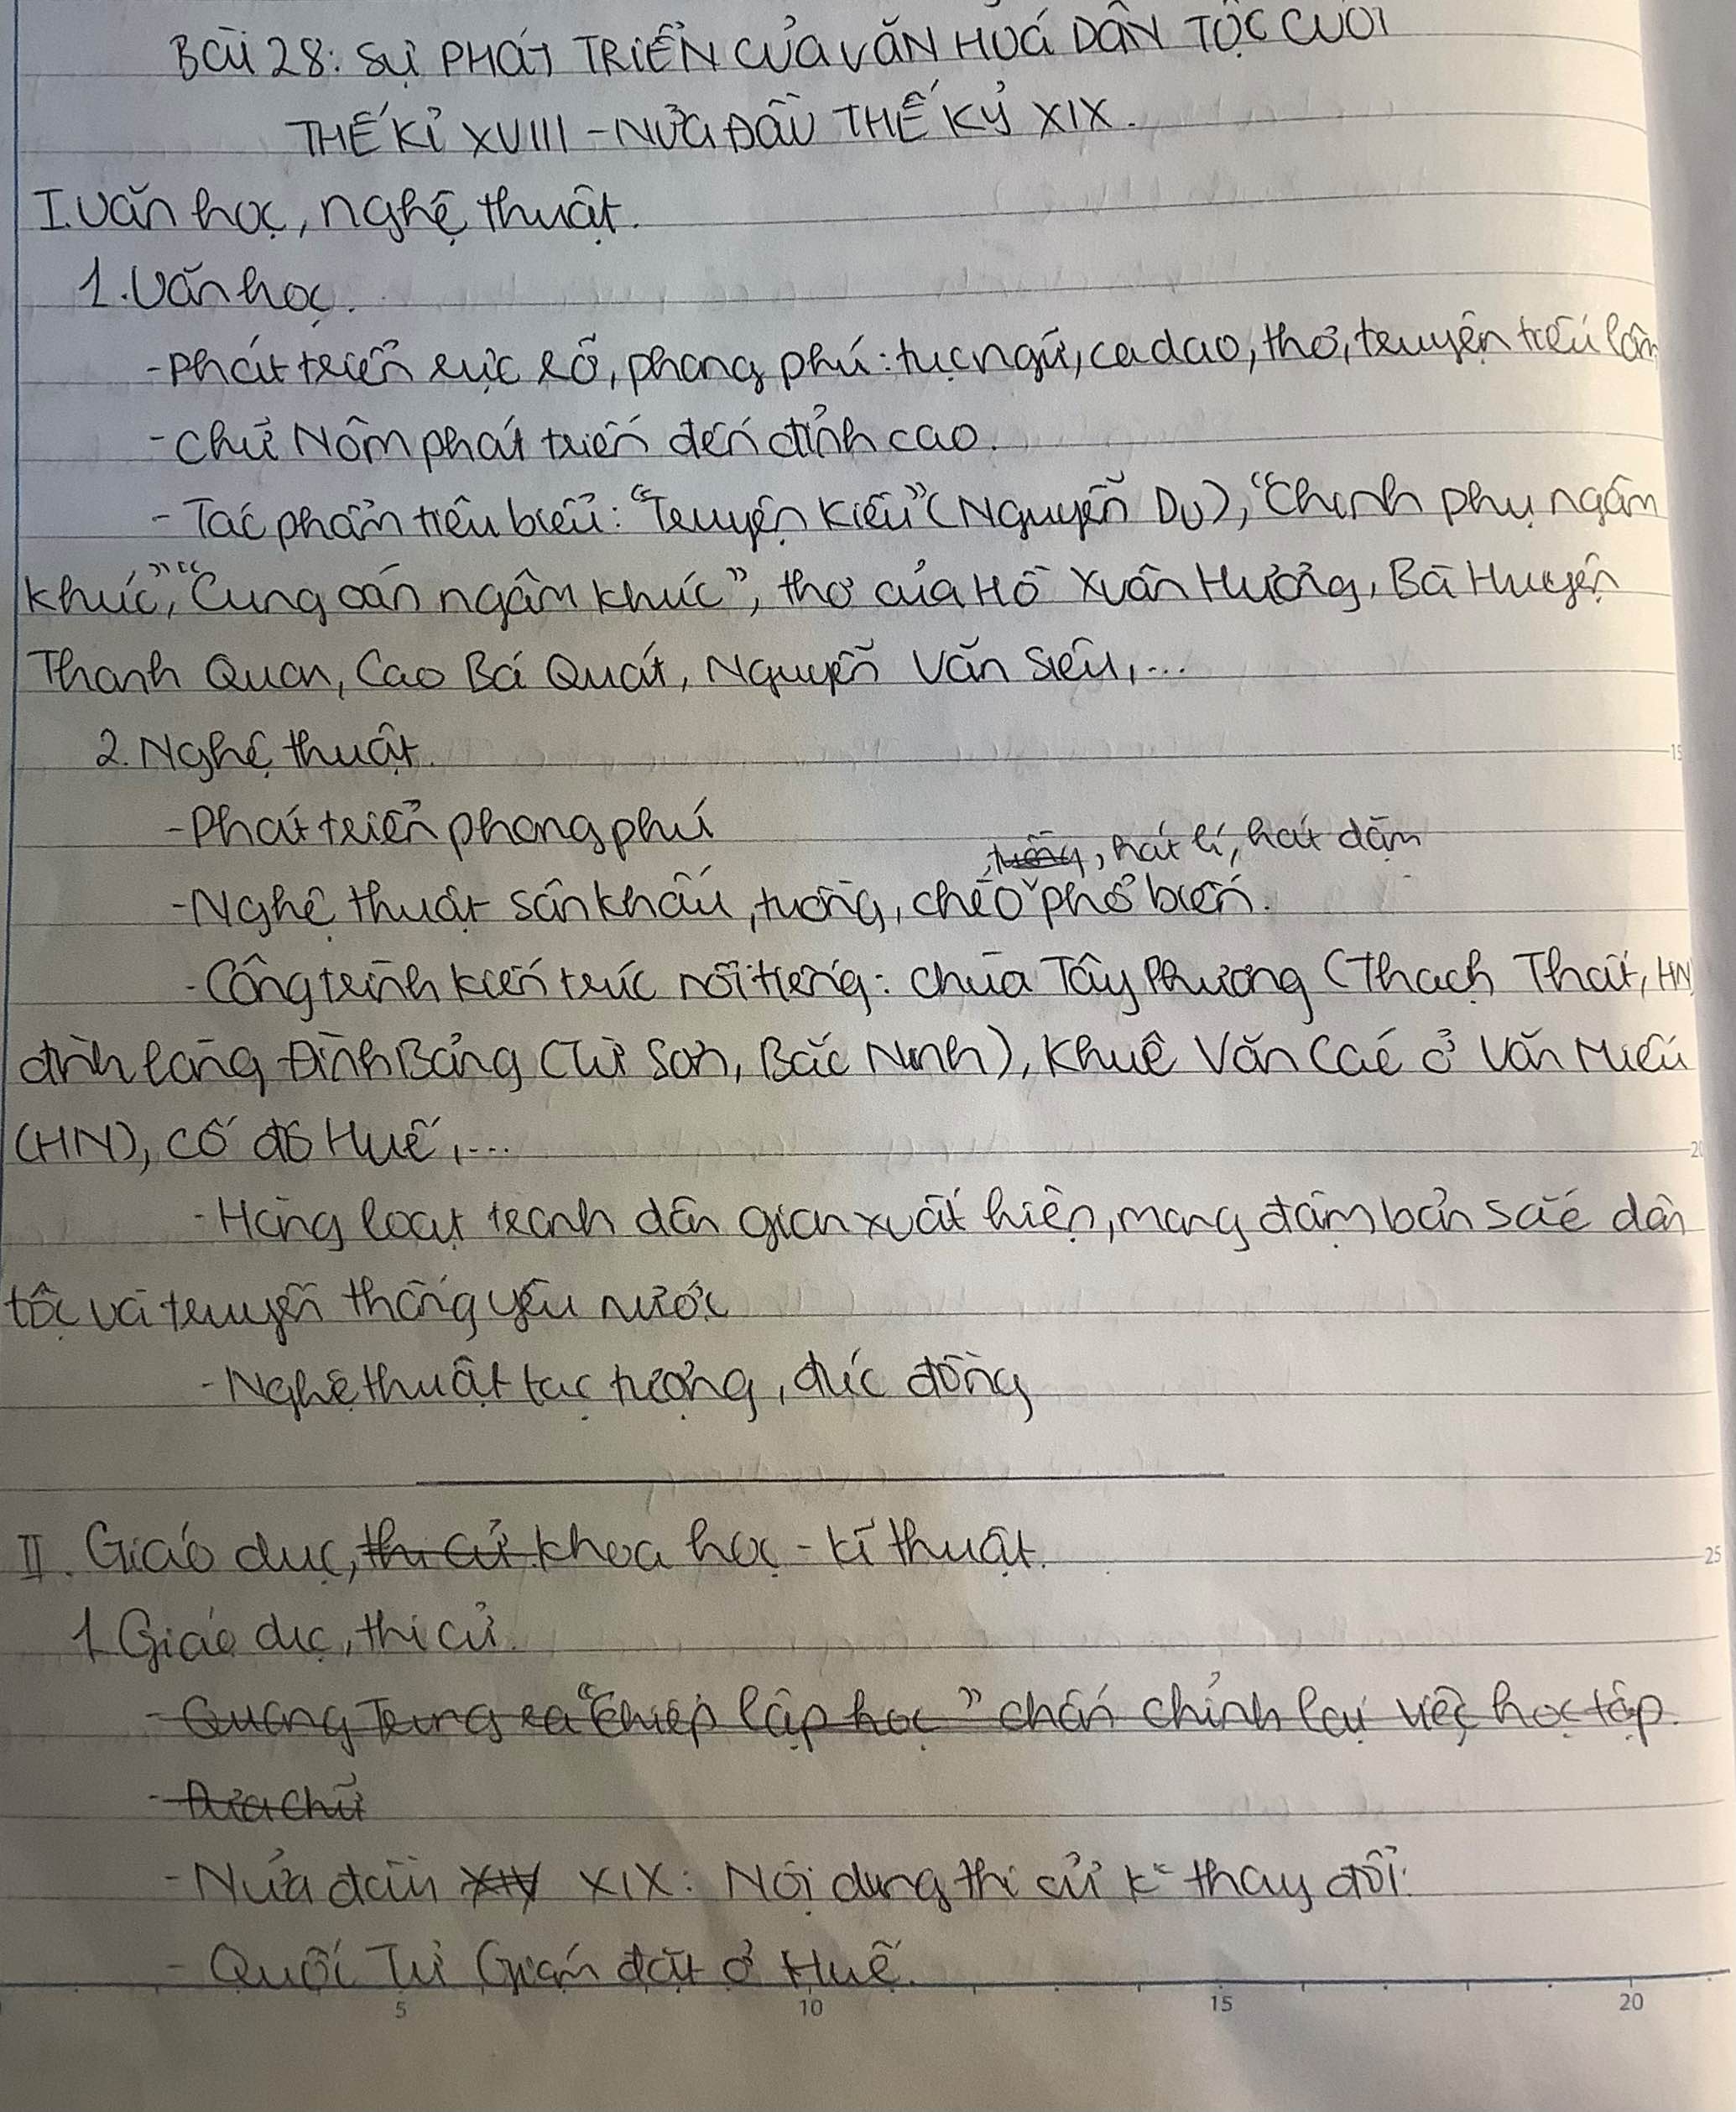 BÀI 28: SỰ PHÁT TRIỂN CỦA VĂN HOÁ DÂN TỘC CUỐI
THẾ KỈ XVIII - NỬA ĐẦU THẾ KỶ XIX.
I. Văn học, nghệ thuật.
1. Văn học.
- Phát triển rực rỡ, phong phú: tục ngữ, ca dao, thơ, truyện tiếu lâm
- Chữ Nôm phát triển đến đỉnh cao.
- Tác phẩm tiêu biểu: "Truyện Kiều" (Nguyễn Du), "Chinh phụ ngâm
khúc", "Cung oán ngâm khúc", thơ của Hồ Xuân Hương, Bà Huyện
Thanh Quan, Cao Bá Quát, Nguyễn Văn Siêu,...
2. Nghệ thuật.
- Phát triển phong phú
, tuồng, hát lí, hát dặm
- Nghệ thuật sân khấu, tuồng, chèo phổ biến.
- Công trình kiến trúc nổi tiếng: chùa Tây Phương (Thạch Thất, HN)
đình làng Đình Bảng (Từ Sơn, Bắc Ninh), Khuê Văn Các ở Văn Miếu
(HN), cố đô Huế,...
- Hàng loạt tranh dân gian xuất hiện, mang đậm bản sắc dân
tộc và truyền thống yêu nước
- Nghệ thuật tạc tượng, đúc đồng
II. Giáo dục, thi cử khoa học - kĩ thuật.
1. Giáo dục, thi cử.
- Quang Trung ra "Chiếp lập học" chấn chỉnh lại việc học tập.
- Đưa chữ
- Nửa đầu XIV XIX: Nội dung thi cử k thay đổi.
- Quốc Tử Giám đặt ở Huế.
5 10 15 20
15
20
25